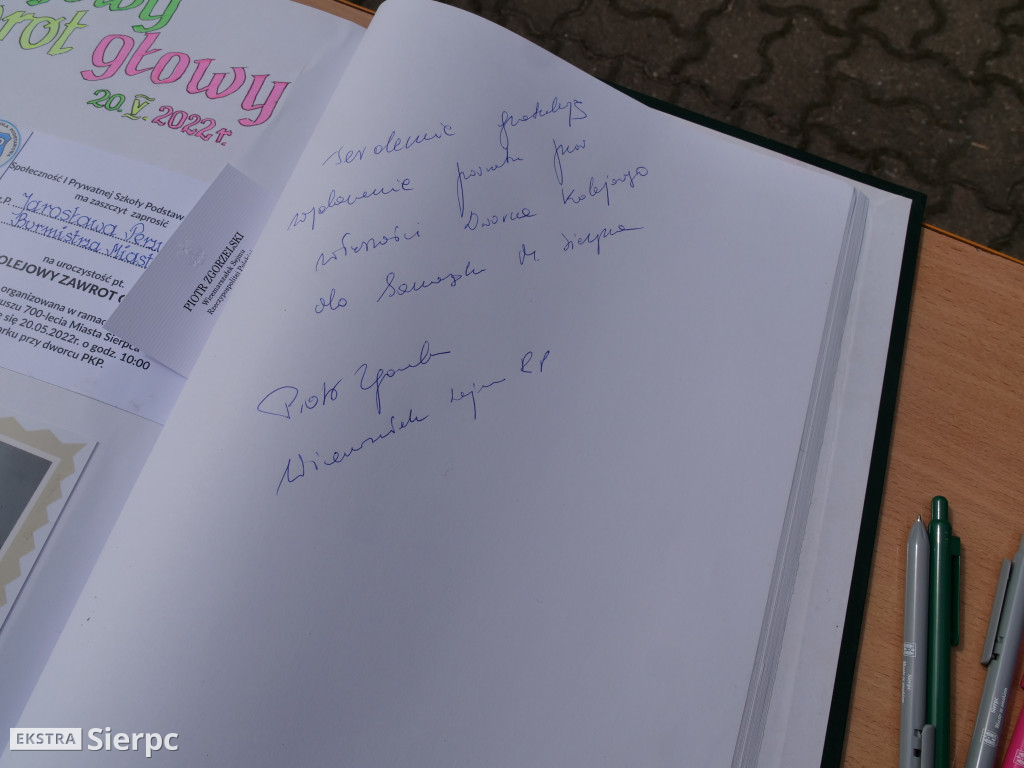 głowy
20.V.2022 r.
Społeczność I Prywatnej Szkoły Podstaw
ma zaszczyt zaprosić
Jarosława Peru
Burmistrza Miast
na uroczystość pt.
OLEJOWY ZAWROT G
organizowana w rama
uszu 700-lecia Miasta Sierpca
się 20.05.2022r. o godz. 10:00
arku przy dworcu PKP.
PIOTR ZGORZELSKI
Wicemarszałek Sejmu
Rzeczypospolitej Polsk
serdecznie gratuluję
wydarzenie prawa
własności Dworca Kolejowego
dla Samorządu M. Sierpca
Piotr Zgorzelski
Wicemarszałek Sejmu RP
EKSTRA Sierpc